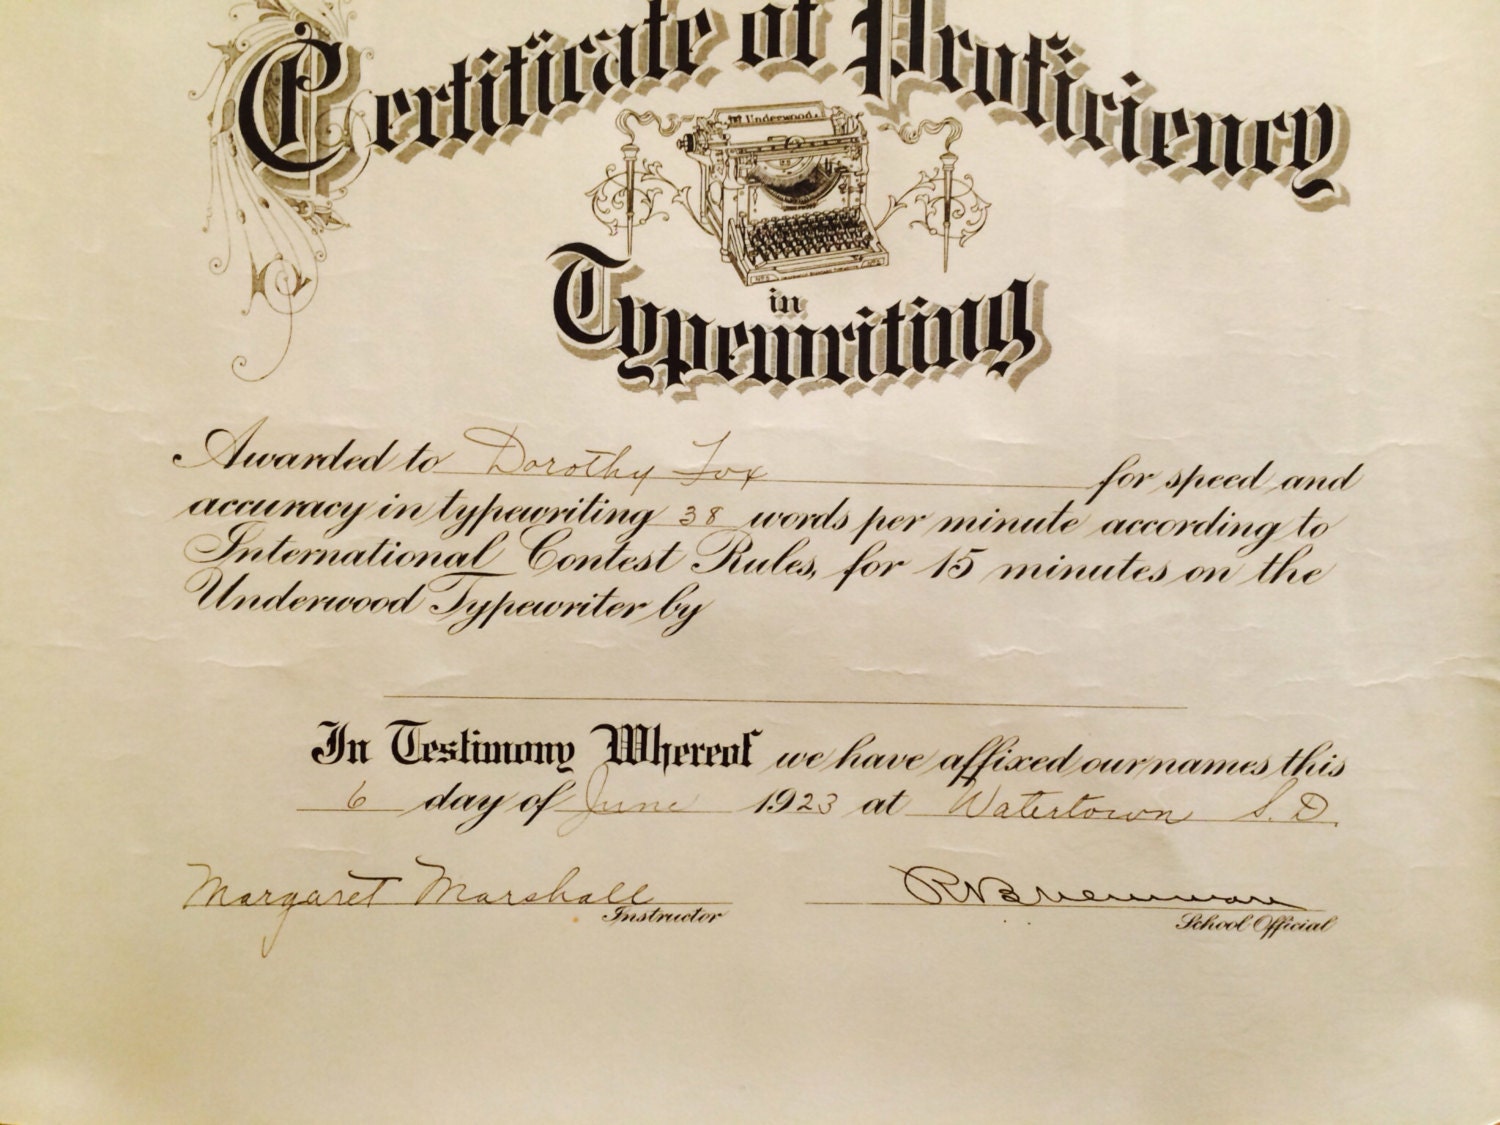 Certificate of Proficiency
Underwood
in
Typewriting
Awarded to Dorothy Fox for speed and
accuracy in typewriting 38 words per minute according to
International Contest Rules, for 15 minutes on the
Underwood Typewriter by
In Testimony Whereof we have affixed our names this
6 day of June 1923 at Watertown S.D.
Margaret Marshall
Instructor
School Official